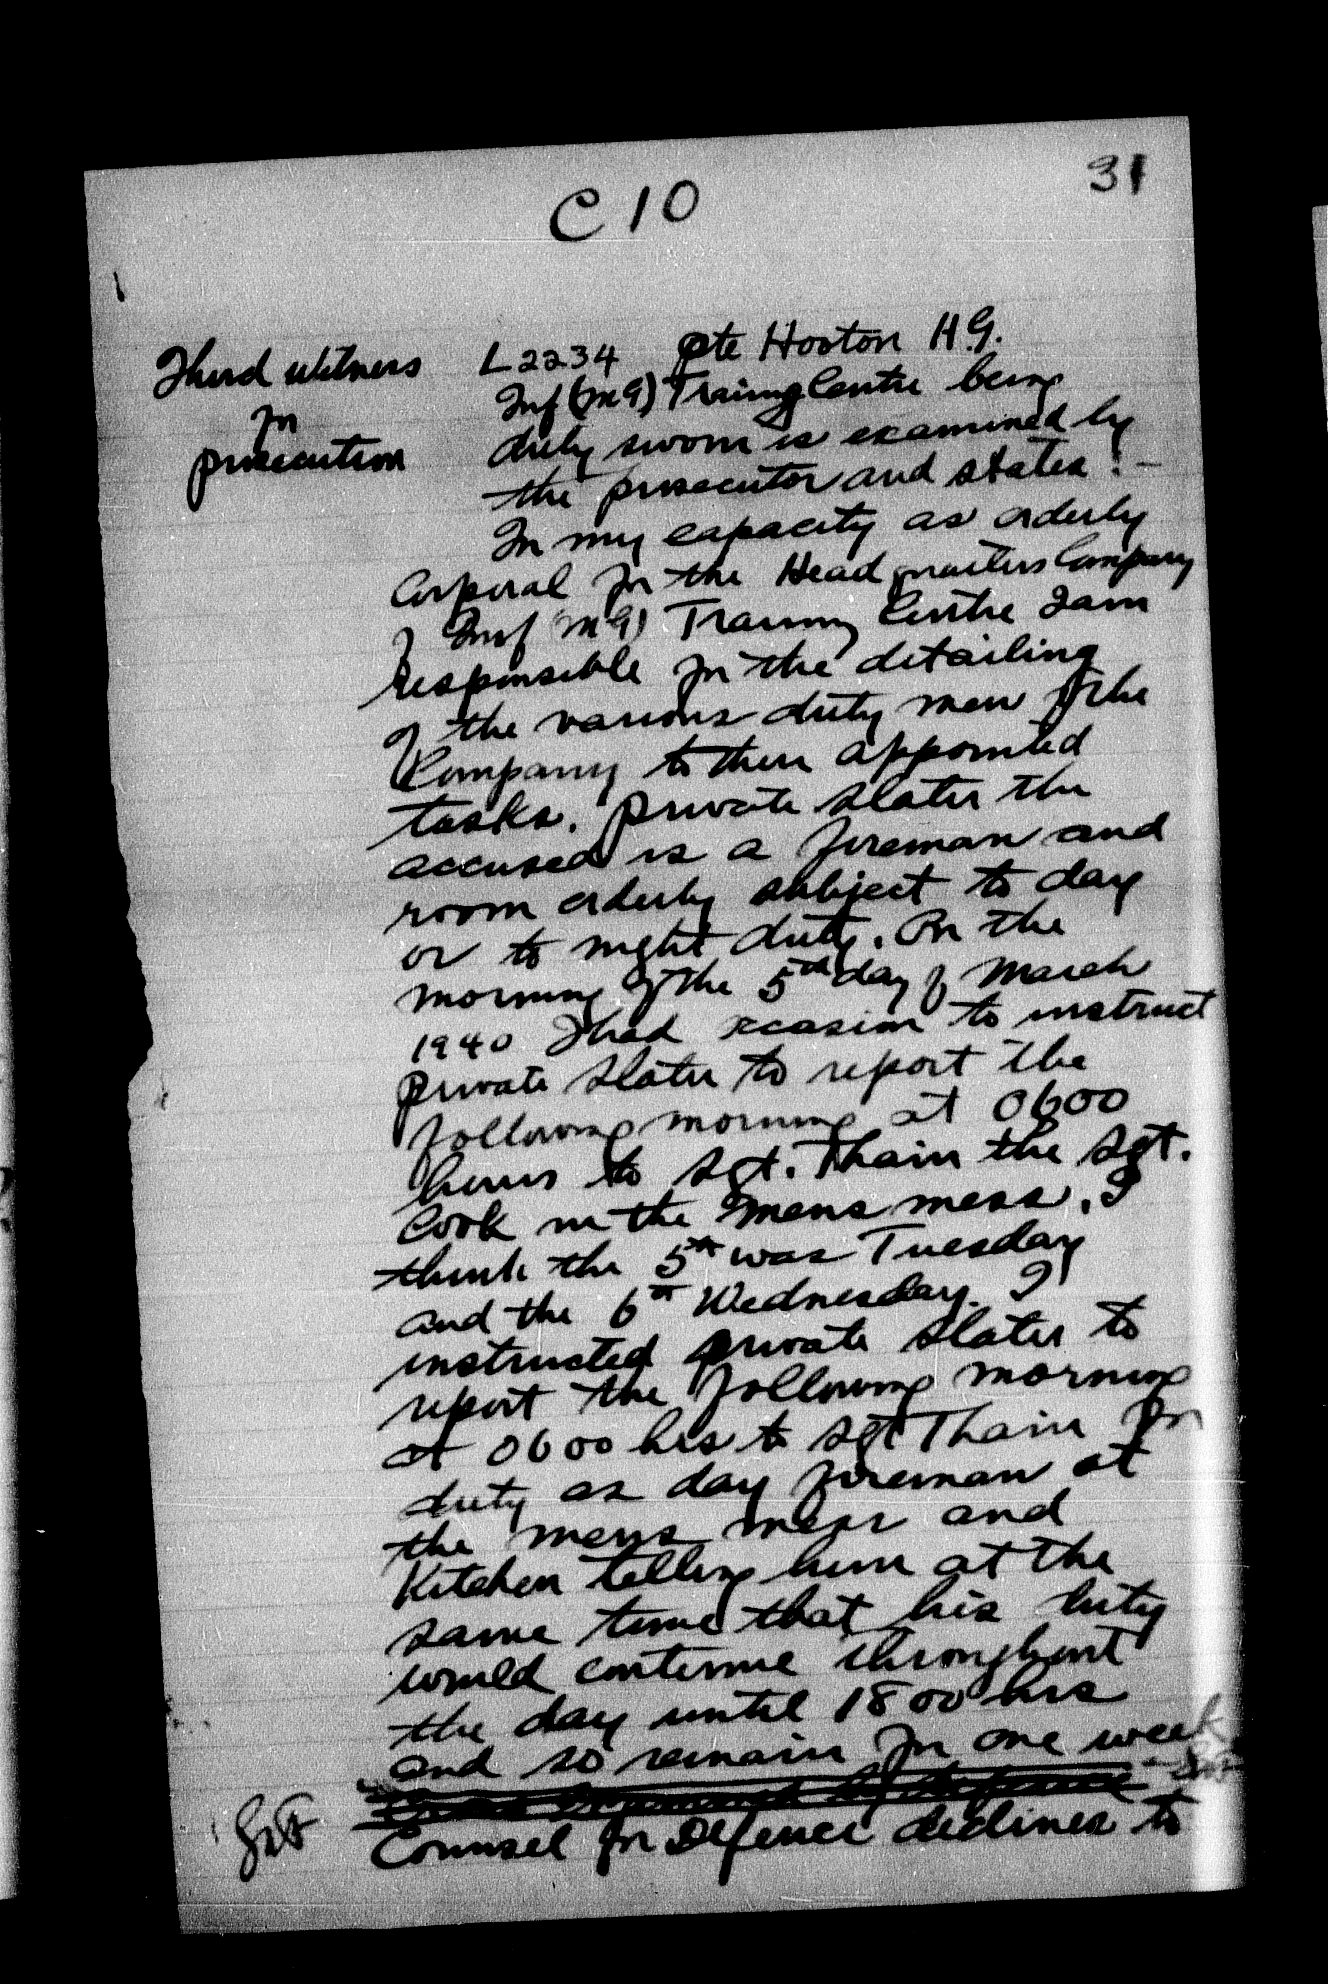 31
C 10
Third witness
for
prosecution
L2234 Pte Hooton H.G.
Inf (M G) Traing Centre being
duly sworn is examined by
the prosecutor and states:-
In my capacity as orderly
Corporal for the Headquarters Company
of Inf (M G) Training Centre I am
responsible for the detailing
of the various duty men of the
Company to their appointed
tasks. Private Slater the
accused is a fireman and
room orderly subject to day
or to night duty. On the
morning of the 5th day of March
1940 I had occasion to instruct
Private Slater to report the
following morning at 0600
hours to Sgt. Thain the Sgt.
Cook in the mens mess. I
think the 5th was Tuesday
and the 6th Wednesday. I
instructed private Slater to
report the following morning
at 0600 hrs to Sgt Thain for
duty as day fireman at
the mens mess and
Kitchen telling him at the
same time that his duty
would continue throughout
the day until 1800 hrs
and so remain for one week
Counsel for Defence declines to